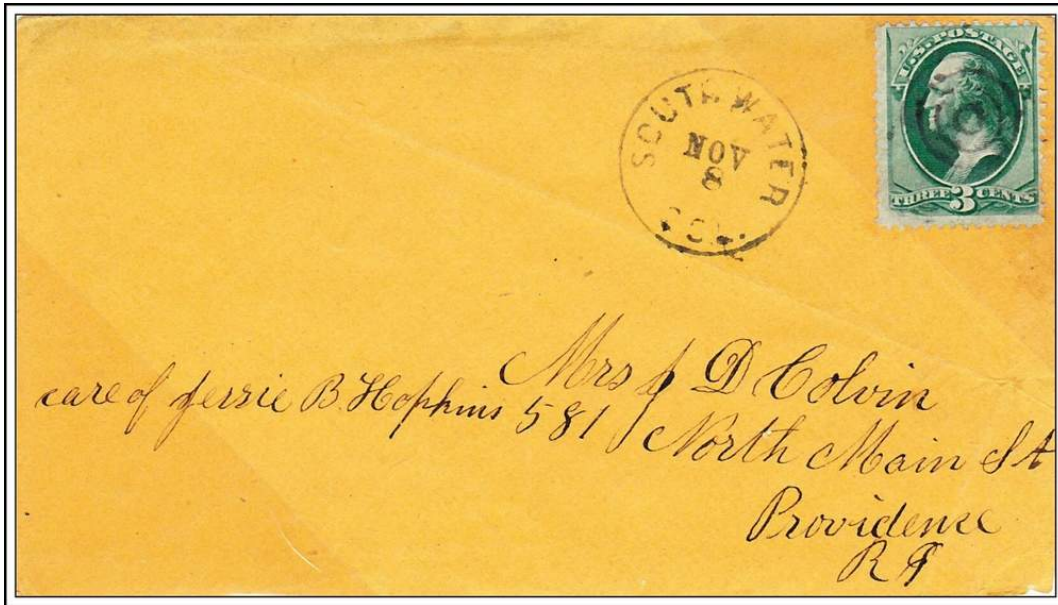 U.S. POSTAGE
THREE 3 CENTS
SOUTH WATER
NOV
8
COL.
Mrs J D Colvin
care of Jerrie B. Hopkins 581 North Main St
Providense
R I